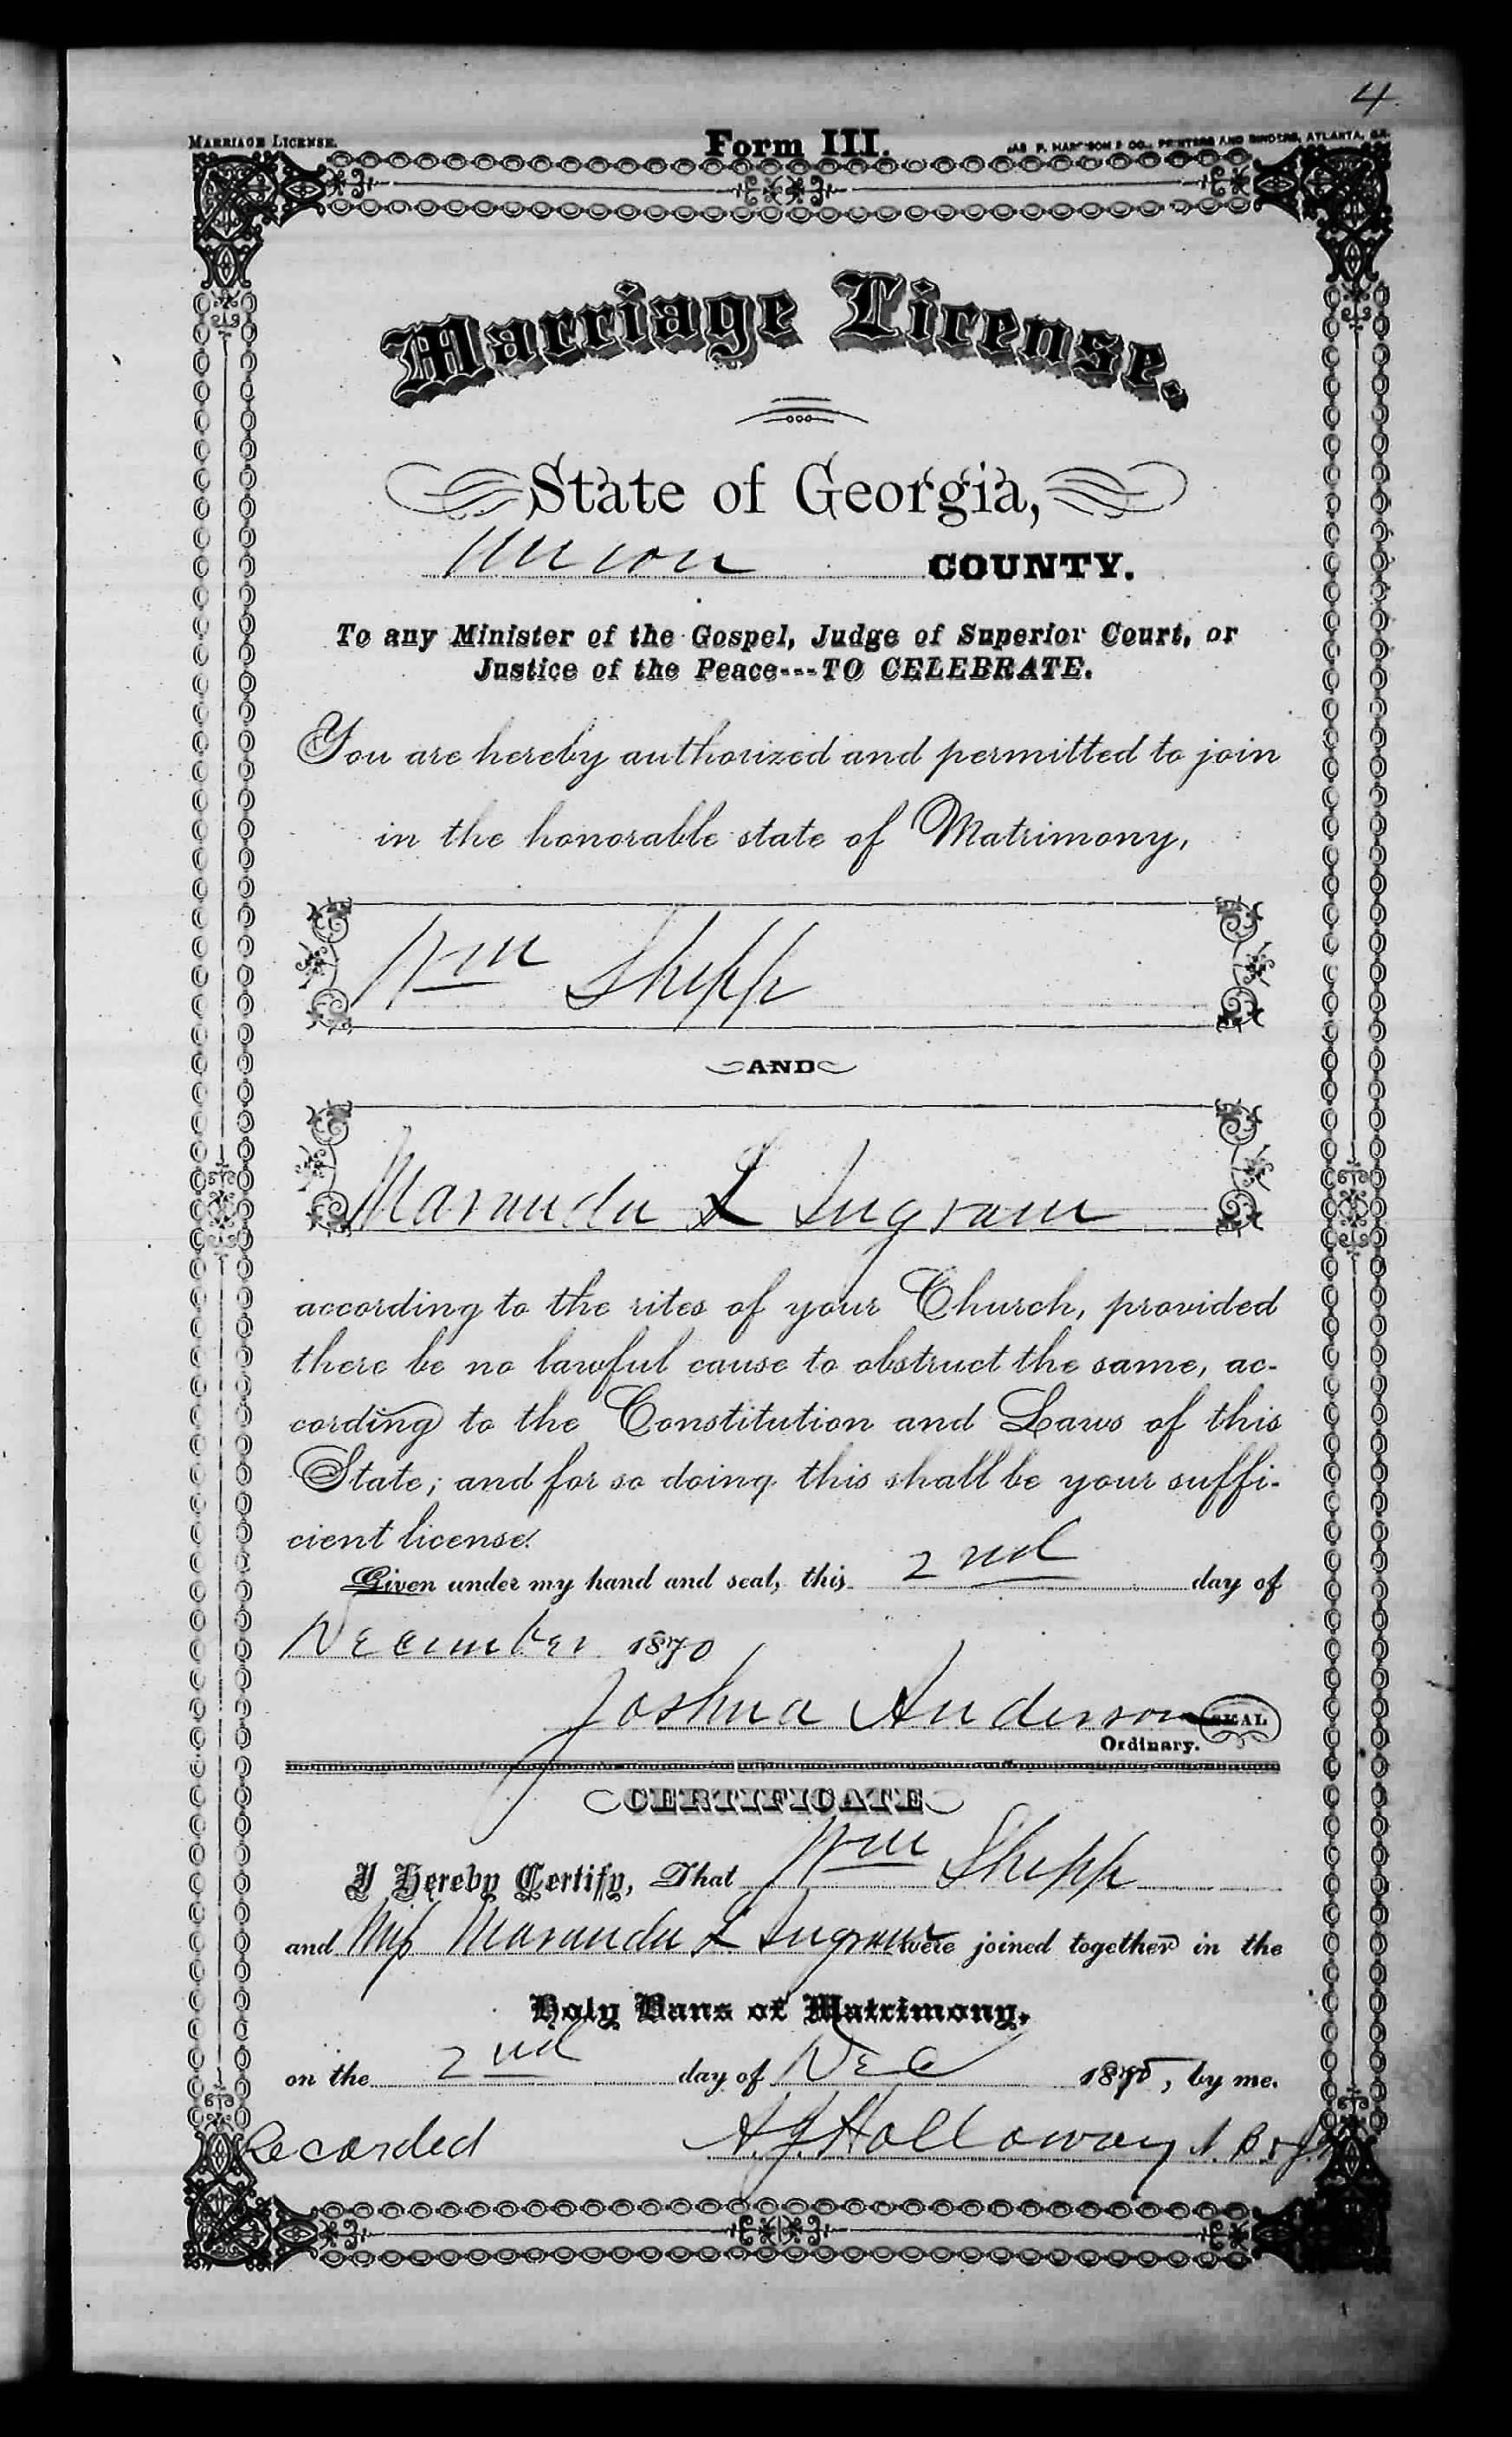 4
MARRIAGE LICENSE.
Form III.
JAS P. HARRISON & CO., PRINTERS AND BINDERS, ATLANTA, GA.
Marriage License.
State of Georgia,
Union COUNTY.
To any Minister of the Gospel, Judge of Superior Court, or
Justice of the Peace---TO CELEBRATE.
You are hereby authorized and permitted to join
in the honorable state of Matrimony,
Wm Shipp
AND
Maranda L Ingram
according to the rites of your Church, provided
there be no lawful cause to obstruct the same, ac-
cording to the Constitution and Laws of this
State; and for so doing this shall be your suffi-
cient license.
Given under my hand and seal, this 2nd day of
December 1870
Joshua Anderson SEAL
Ordinary.
CERTIFICATE
I Hereby Certify, That Wm Shipp
and Miss Maranda L Ingram were joined together in the
Holy Bans of Matrimony,
on the 2nd day of Dec 187, by me.
Recorded A. J. Holloway